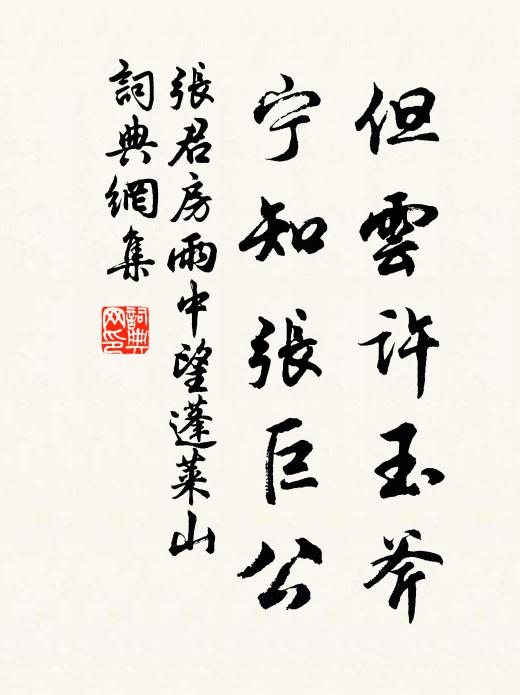 但雲許玉斧
宁知張巨公
張君房雨中望蓬萊山
詞典網集
詞典网印